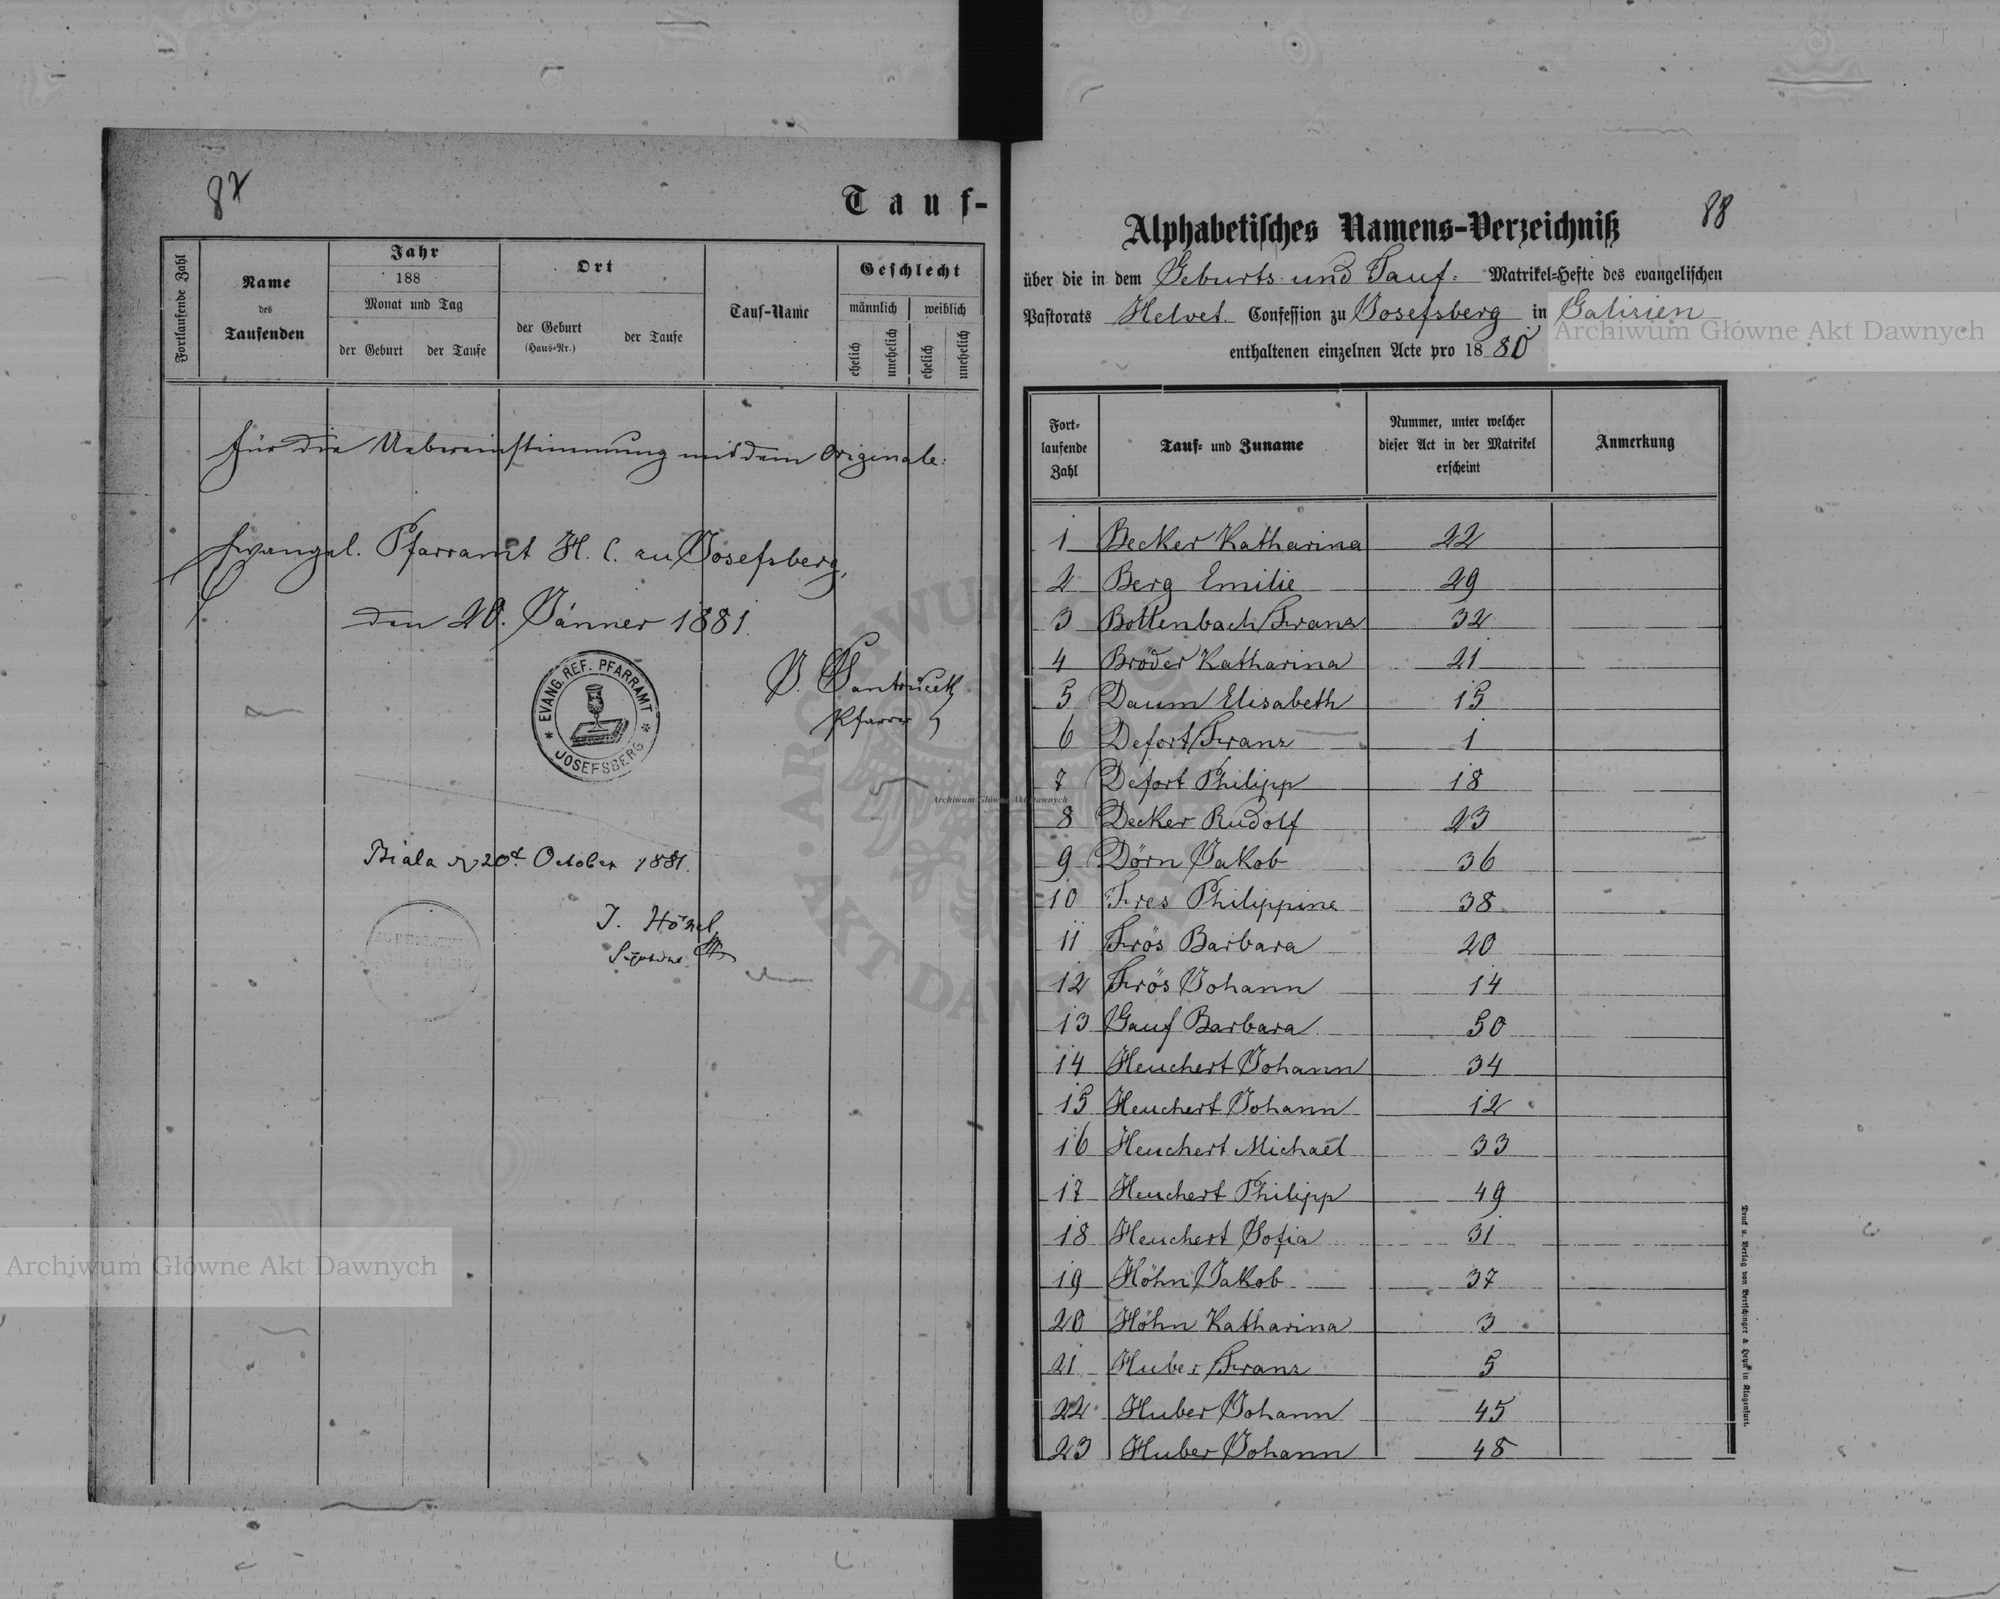 87
Tauf-
Fortlaufende Zahl
Name
des
Taufenden
Jahr
188
Monat und Tag
der Geburt
der Taufe
Ort
der Geburt
(Haus-Nr.)
der Taufe
Tauf-Name
Geschlecht
männlich
weiblich
ehelich
unehelich
ehelich
unehelich
Für die Uebereinstimmung mit dem Originale:
Evangel. Pfarramt H. C. zu Josefsberg,
den 20. Jänner 1881.
EVANG. REF. PFARRAMT
* JOSEFSBERG *
Pfarrer
Biala 20t October 1881.
J. Hönel
88
Alphabetisches Namens-Verzeichniß
über die in dem Geburts- und Tauf- Matrikel-Hefte des evangelischen
Pastorats Helvet. Confession zu Josefsberg in Galizien
enthaltenen einzelnen Acte pro 1880
Fort-
laufende
Zahl
Tauf- und Zuname
Nummer, unter welcher
dieser Act in der Matrikel
erscheint
Anmerkung
1 Becker Katharina 22
2 Berg Emilie 29
3 Bottenbach Franz 32
4 Bröder Katharina 21
5 Daum Elisabeth 15
6 Defort Franz 1
7 Defort Philipp 18
8 Decker Rudolf 23
9 Dörn Jakob 36
10 Fres Philippine 38
11 Frös Barbara 20
12 Frös Johann 14
13 Gauf Barbara 50
14 Heuchert Johann 34
15 Heuchert Johann 12
16 Heuchert Michael 33
17 Heuchert Philipp 49
18 Heuchert Sofia 31
19 Höhn Jakob 37
20 Höhn Katharina 3
21 Huber Franz 5
22 Huber Johann 45
23 Huber Johann 48
Druck u. Verlag von Bertschinger & Heyn in Klagenfurt.
Archiwum Główne Akt Dawnych
Archiwum Główne Akt Dawnych
Archiwum Główne Akt Dawnych